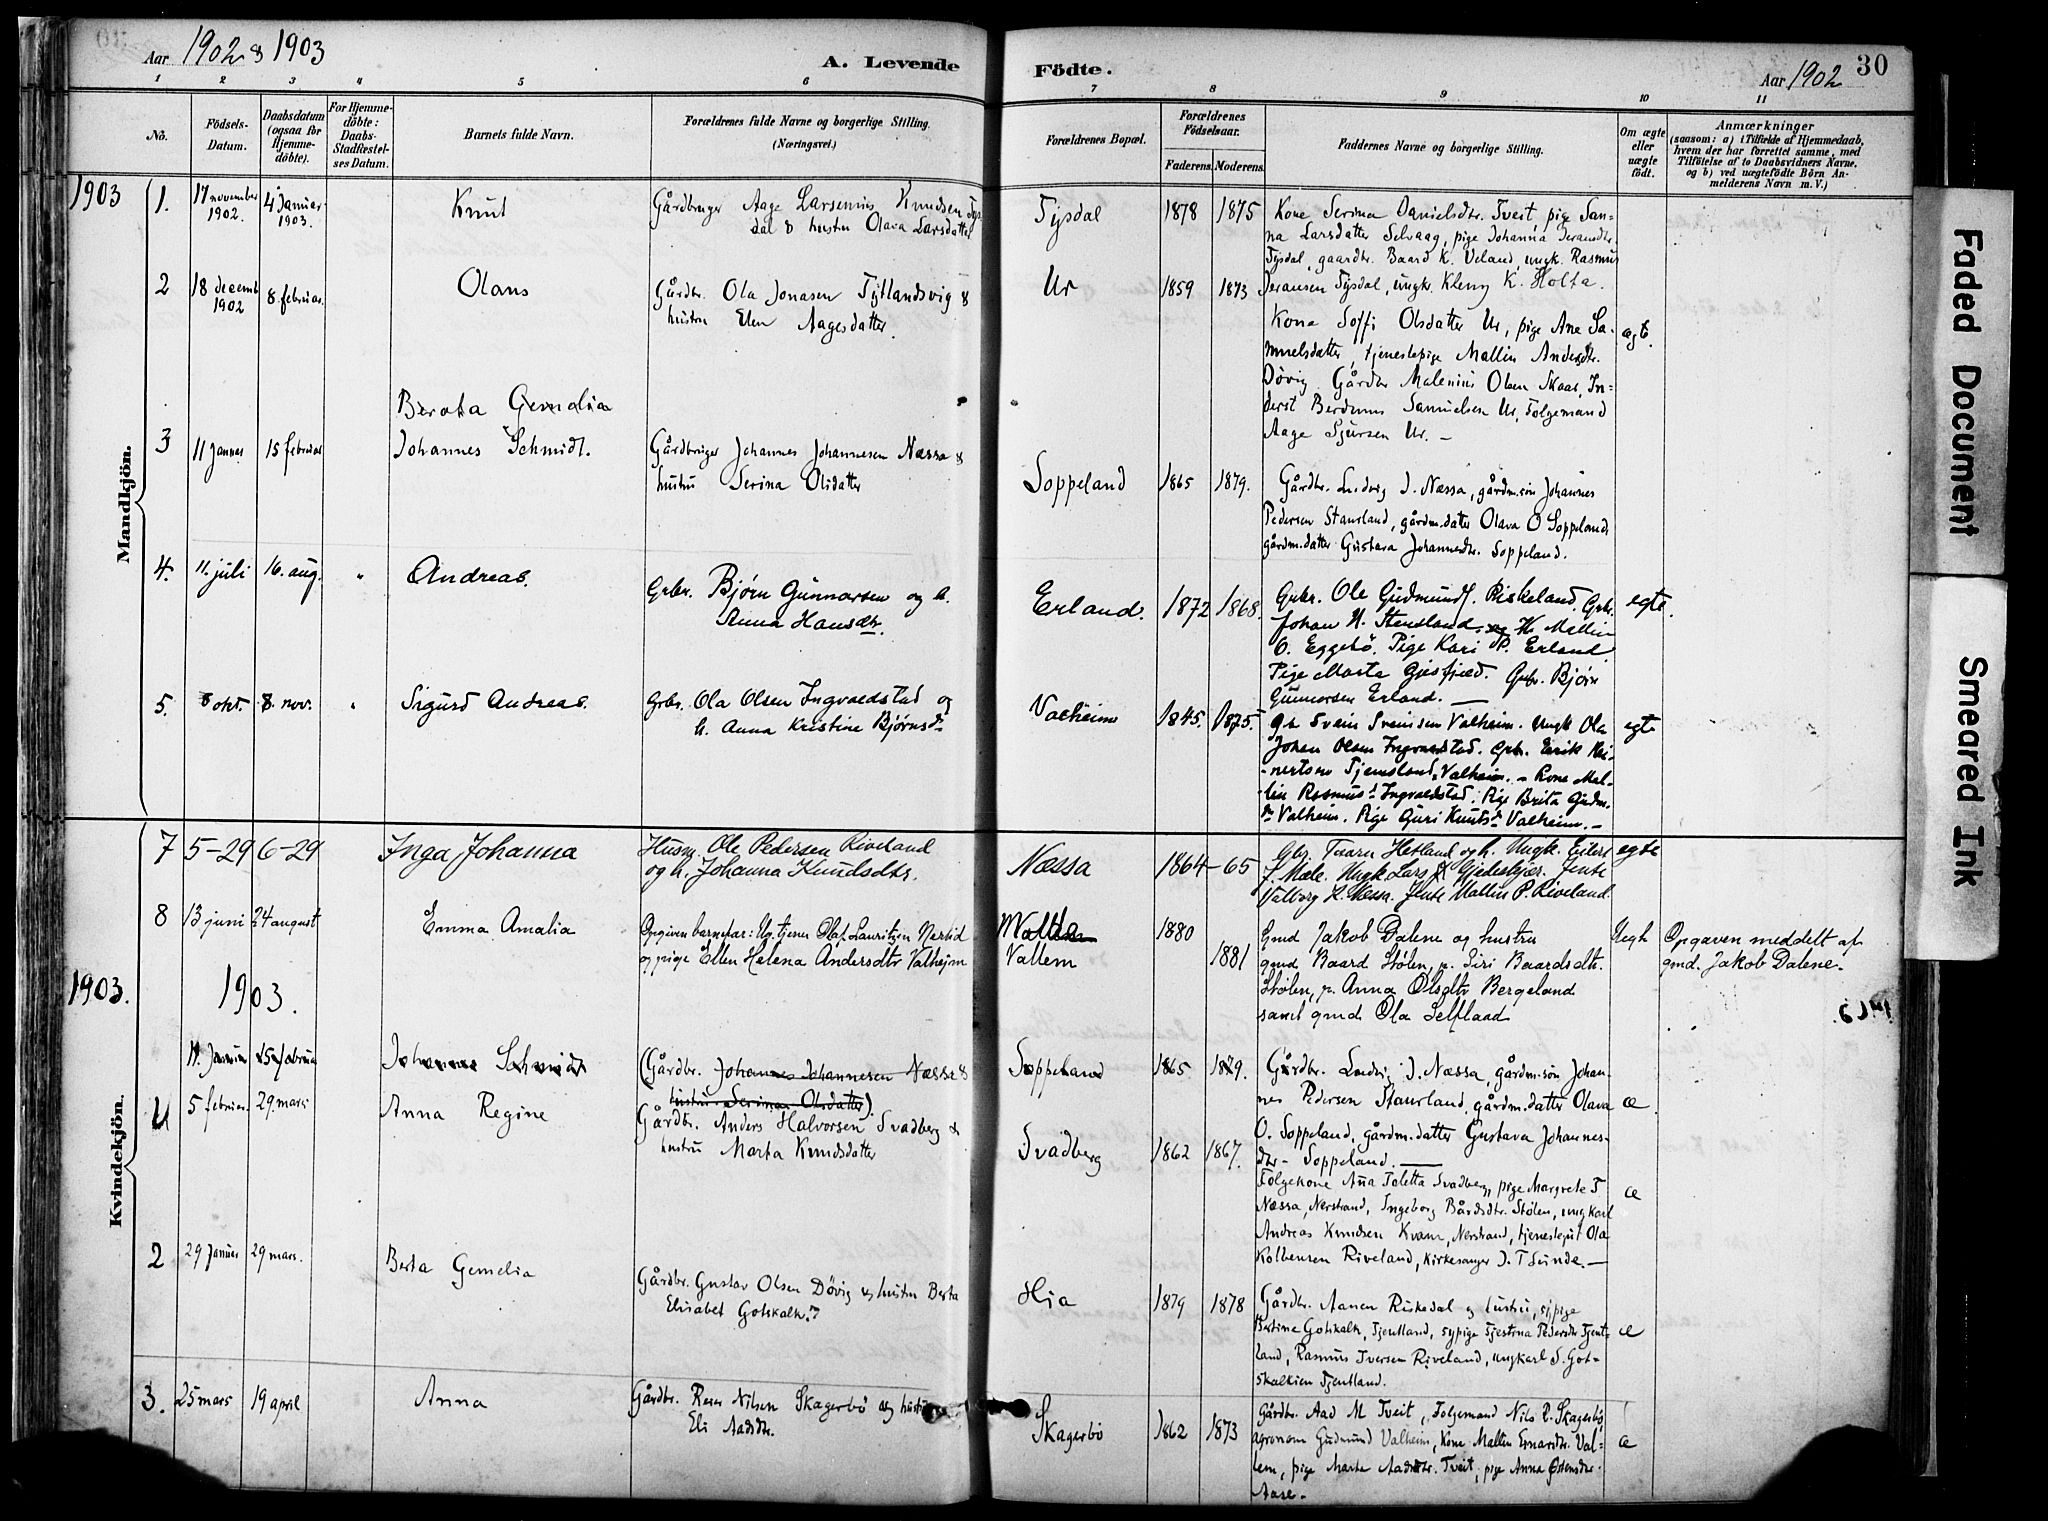 Aar 1902 & 1903
A. Levende
Födte.
Aar 1902
30
1 2 3 4 5 6 7 8 9 10 11
No.
Födsels-Datum.
Daabsdatum (ogsaa for Hjemmedöbte).
For Hjemmedöbte: Daabs-Stadfæstelses Datum.
Barnets fulde Navn.
Forældrenes fulde Navne og borgerlige Stilling. (Næringsvei.)
Forældrenes Bopæl.
Forældrenes Födselsaar.
Faderens. Moderens.
Faddernes Navne og borgerlige Stilling.
Om ægte eller uægte födt.
Anmærkninger
(saasom: a) i Tilfælde af Hjemmedaab, hvem der har forrettet samme, med Tilföielse af to Daabsvidners Navne, og b) ved uægtefödte Börn Anmelderens Navn m. V.)
Mandkjön.
1903
1. 17 november 1902. 4 januar 1903. Knut
Gårdbruger Aage Larsenius Knudsen Tysdal & hustru Olava Larsdatter
Tysdal 1878 1875
Kone Serina Danielsdtr. Tveit, pige Sanna Larsdatter Selvaag, pige Johanna
Tysdal, gaardbr. Baard K. Veland, ungk. Rasmus
Tysdal, ungkr. Kleng K. Holta.
2 18 decemb 1902 8. februar. Olaus
Gårdbr. Ola Jonasen Tytlandsvig & hustru Elen Aagesdatter.
Ur 1859 1873
Kone Soffi Olsdatter Ur, pige Ane Samuelsdatter, tjenestepige Mallin Andersdtr.
Dövig. Gårdbr Malenius Olsen Skaar, Inderst Samuelsen Ur, Folgemand
Aage Sjursen Ur. —
ægt.
3 11 januar 15 februar
Johannes Schmidt.
Gårdbruger Johannes Johannesen Næssa & hustru Serina Olsdatter
Soppeland 1865 1879.
Gårdbr. Ludvig J. Næssa, gårdm.søn Johannes
Pedersen Staurland, gårdm.datter Olava O Soppeland,
gårdm.datter Gustava Johannesdtr. Soppeland.
4. 11. juli 16. aug. " Andreas.
Grbr. Bjørn Gunnarsen og h. Anna Hansdtr.
Erland. 1872 1868.
Grbr. Ole Gudmunds. Riskeland. Grbr.
Johan H. Stensland, K. Mallin
O. Eggebö. Pige Kari P. Erland
Pige Marta. Grbr. Bjørn
Gunnarsen Erland. —
egte.
5. 8 okt. 8. nov. " Sigurd Andreas.
Grbr. Ola Olsen Ingvaldstad og h. Anna Kristine Bjørnsdr
Valheim 1845. 1875.
Gbr Svein Sveinsen Valheim. Ungk Ola
Johan Olsen Ingvaldstad. Grbr. Erik Reinertsen Tjemsland, Valheim. – Kone Mallin Rasmusd Ingvaldstad. Pige Brita Gudm.
dr Valheim. Pige Guri Knutsd Valheim. —
egte
Kvindekjön.
7 5–29 6–29 Inga Johanna
Husm. Ole Pedersen Riveland og h. Johanna Knudsdtr.
Næssa 1864–65
Hetland og h. Ungk.
Ungk Lars. Jente
Valborg K. Næssa. Jente Mallin P. Riveland.
egte
8 13 juni 24 august Emma Amalia
Opgiven barnefar: Ug. tjener Olaf Lauritzen
og pige Ellen Helena Andersdtr Valhejm
Vallem 1880 1881
Gmd Jakob Dalene og hustru
gmd Baard Stølen, p. Siri Baardsdtr.
Stølen, p. Anna Olsdtr Bergeland
samt gmd Ola
Uegt
Opgaven meddelt af
gmd. Jakob Dalene.
1903.
1903.
11. januar 15 februar Johannes Schmidt
(Gårdbr. Johannes Johannesen Næssa & hustru Serina Olsdatter).
Soppeland 1865. 1879.
Gårdbr. Ludvig J. Næssa, gårdm.søn Johannes Pedersen Staurland, gårdm.datter Olava
O. Soppeland, gårdm.datter Gustava Johannesdtr– Soppeland. —
æ.
1 5 februar. 29. mars Anna Regine
Gårdbr. Anders Halvorsen Svadberg & hustru Marta Knudsdatter
Svadberg 1862 1867.
Folgekone Ana Toletta Svadberg, pige Margrete T
Næssa, Nerstrand, Ingeborg Bårdsdtr. Stölen, ungkarl
Andreas Knudsen Kvam, Nerstrand, tjenestegut Ola
Kolbensen Riveland, kirkesanger J. T Sunde. —
æ
2 29 januar 29 mars. Berta Gemelia
Gårdbr. Gustav Olsen Dövig og hustru Berta Elisabet Gotskalk.
Hia 1879 1878
Gårdbr. Aanen Riskedal og hustru, sypige
Bertine Gotskalk, Tjentland, sypige Tjestina Pedersdtr Tjentland, Rasmus Iversen Riveland, ungkarl S. Gotskalksen Tjentland.
æ
3. 25 mars 19 april Anna
Gårdbr. Nilsen Skagerbö og hustru Eli Aadsdtr.
Skagerbö 1862 1873
Gårdbr. Aad M Tveit, Folgemand Nils R. Skagerbö,
agronom Gudmund Valheim, Kone Mallin Valhem, pige Marta Aadsdtr. Tveit, pige Anna Østensdtr.
Aase.
æ
Faded Document
Smeared Ink